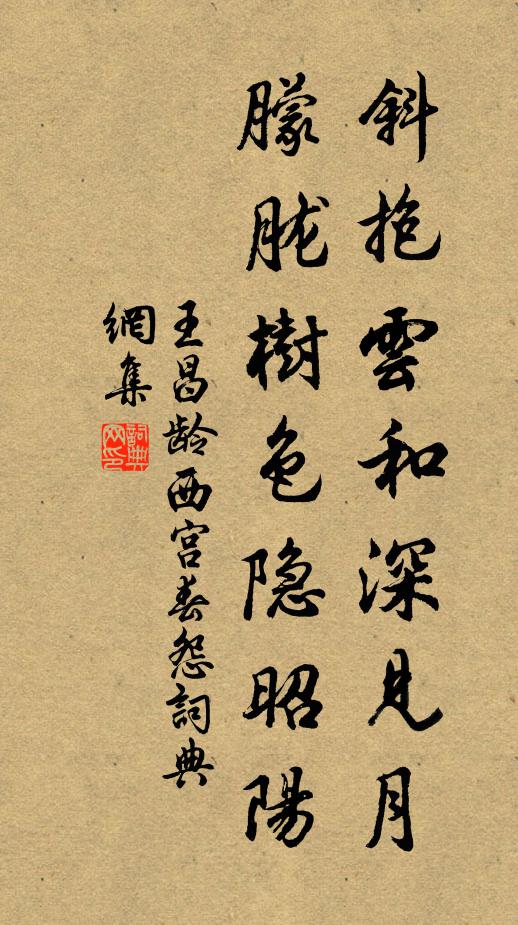 斜抱雲和深見月
朦朧樹色隐昭陽
王昌龄西宫春怨詞典
網集
詞典网印